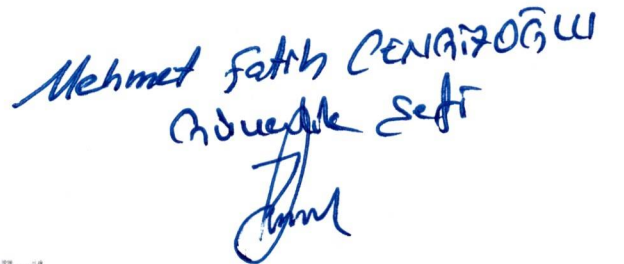 Mehmet Fatih CENGİZOĞLU
Güvenlik Şefi